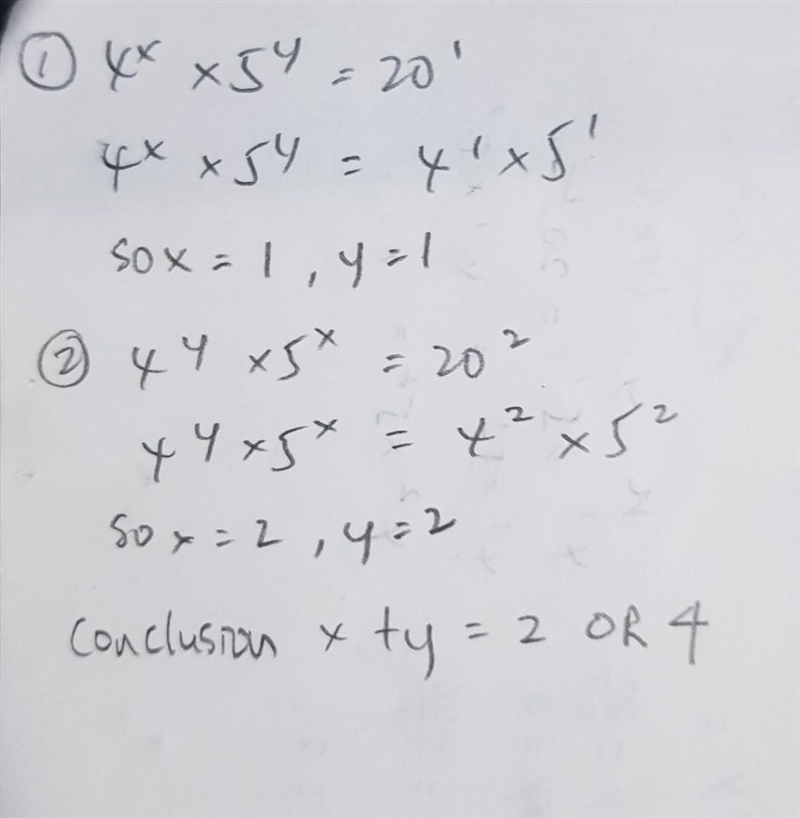 ① 4ˣ × 5ʸ = 20¹
4ˣ × 5ʸ = 4¹ × 5¹
so x = 1 , y = 1
② 4ʸ × 5ˣ = 20²
4ʸ × 5ˣ = 4² × 5²
so x = 2 , y = 2
Conclusion x + y = 2 OR 4